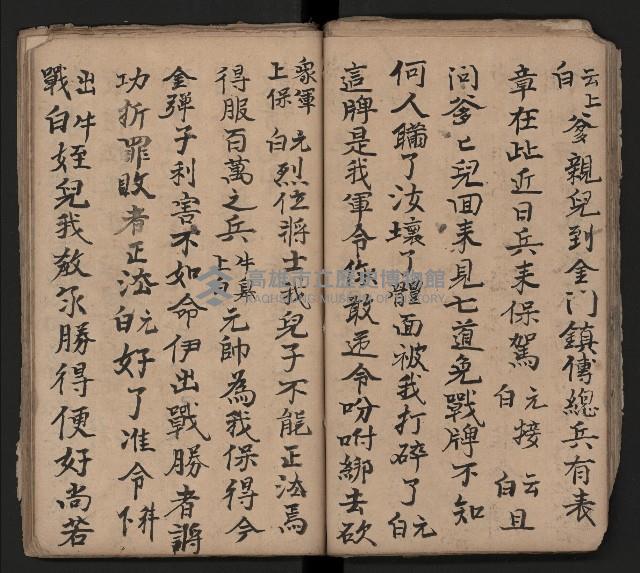 云上白 爹親兒到金門鎮傳總兵有表
章在此近日兵來保駕 元接白 云白且
问爹〻兒回来見七道免戰牌不知
何人瞞了汝壞了體面被我打碎了 元白
這牌是我軍令你敢違令吩咐綁去砍
众軍上保 元白 烈位將士我兒子不能正法焉
得服百萬之兵 牛 上白 元帥為我保得今
金彈子利害不如命伊出戰勝者將
功折罪敗者正法 元白 好了准令 下
出戰 牛白 姪兒我救你勝得便好尚若
高雄市立歷史博物館
KAOHSIUNG MUSEUM OF HISTORY